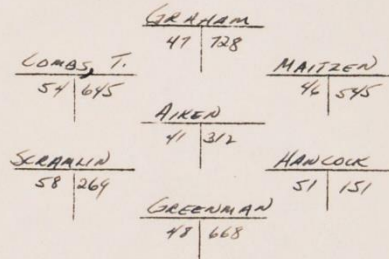 GRAHAM
47 728
COMBS, T.
54 645
MAITZEN
46 545
AIKEN
41 312
SCRAMLIN
58 269
HANCOCK
51 151
GREENMAN
48 668